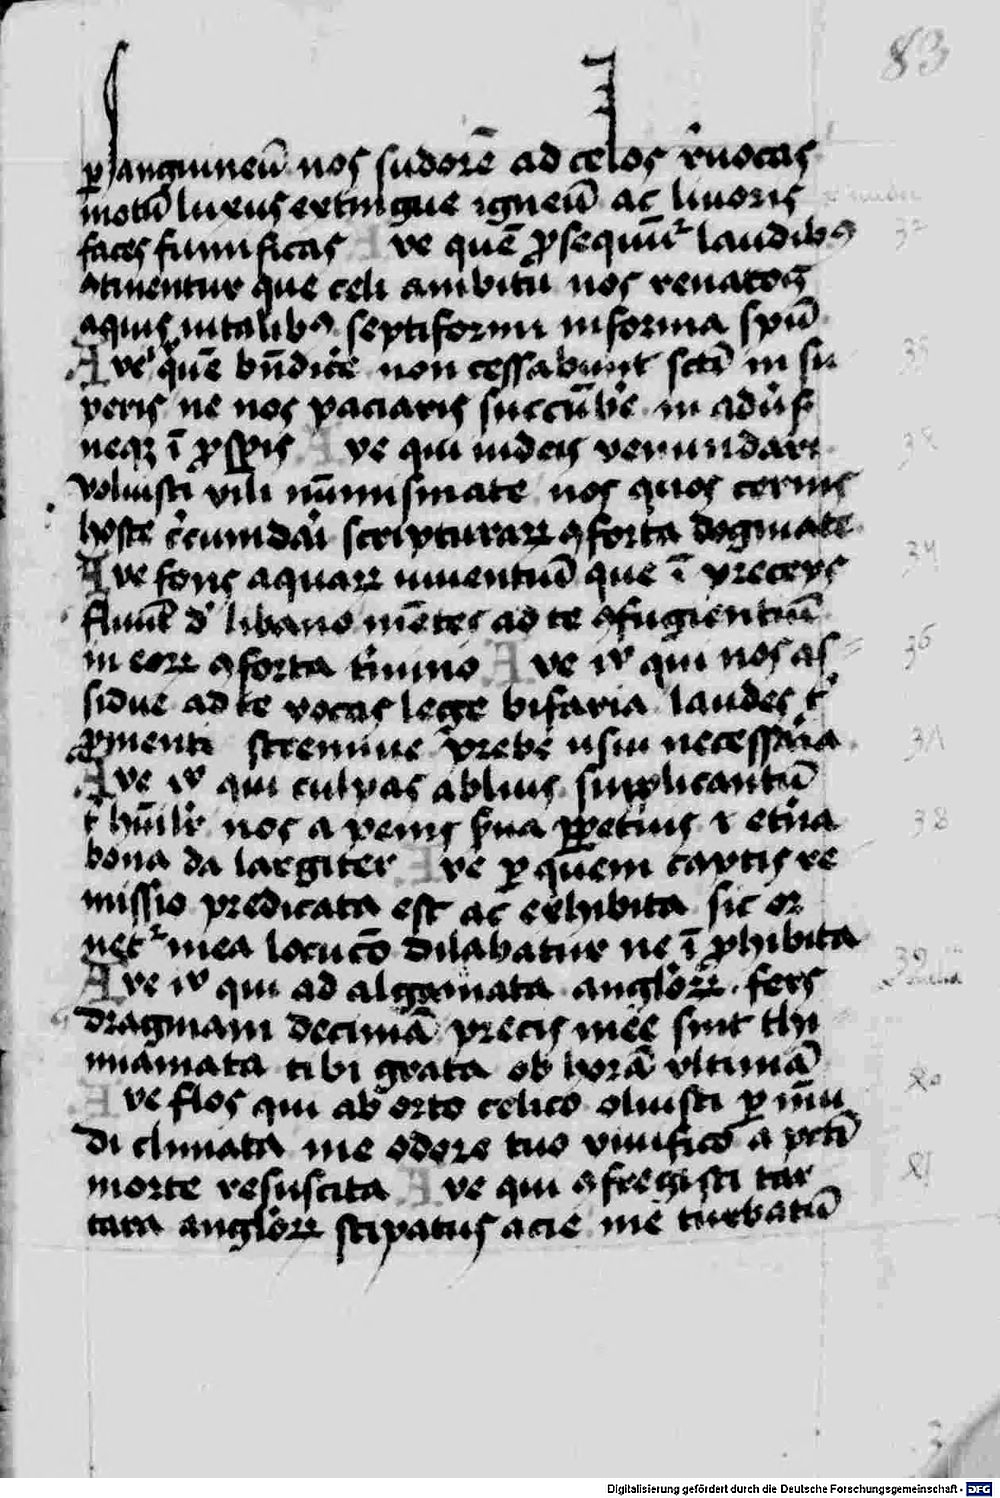 83
p sanguineū nos sudorē ad celos r̕uocas
motū luxus extingue igneū ac liuoris
faces fumificas Ave quē ꝓsequūt᷑ laudibꝰ
32
ꝯtinentur que celi ambitu nos renatos
aquis vitalibꝰ septiformi informa spū
Ave quē bn̄dic̕e non cessabunt sctī in su
35
peris ne nos paciaris succūb̕e in adu̕s
neqꝫ ī ꝓsꝑis Ave qui iudeis venundari
voluisti vili nūmismate nos quos cernis
hoste c̕cumdari scripturaꝝ ꝯforta dogmate
Ave fons aquaꝝ viuentiū que ī preceps
34
fluūt d̕ libano mētes ad te ꝯfugientiū
in eoꝝ ꝯforta t̕mino Ave iħ qui nos as
36
sidue ad te vocas lege bifaria laudes t̕
ꝓmenti strennue prebe usui necessaria
Ave iħ qui culpas abluis supplicantiū
t hūilit̕ nos a penis ꝑpetius ⁊ et̕na
38
bona da largiter Ave ꝑ quem captis re
missio predicata est ac exhibita sic or
net᷑ mea locucō dilabatur ne ī ꝓhibita
39
Ave iħ qui ad algamata angloꝝ fers
dragmam decimā precis mee sint thi
miamata tibi grata ob horā vltimā
40
Ave flos qui ab orto celico oluisti ꝑ mū
di climata me odore tuo viuifico a pctī
41
morte resuscita Ave qui ꝯfregisti tar
tara angloꝝ stipatus acie me turbatū
Digitalisierung gefördert durch die Deutsche Forschungsgemeinschaft - DFG